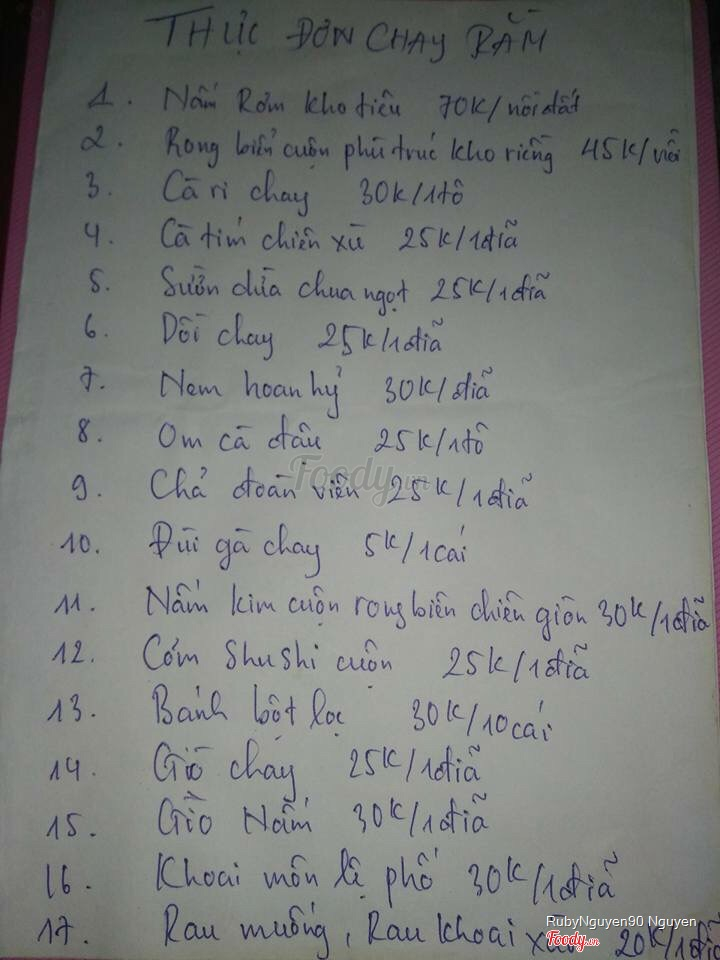 THỰC ĐƠN CHAY RẰM
1. Nấm Rơm kho tiêu 70K/nồi đất
2. Rong biển cuộn phù trúc kho riềng 45K/
3. Cà ri chay 30K/1tô
4. Cà tím chiên xù 25K/1đĩa
5. Sườn dừa chua ngọt 25K/1đĩa
6. Dồi chay 25K/1đĩa
7. Nem hoan hỷ 30K/đĩa
8. Om cà đấu 25K/1tô
9. Chả đoàn viên 25K/1đĩa
10. Đùi gà chay 5K/1cái
11. Nấm kim cuộn rong biển chiên giòn 30K/1đĩa
12. Cơm Shushi cuộn 25K/1đĩa
13. Bánh bột lọc 30K/10cái
14. Giò chay 25K/1đĩa
15. Giò Nấm 30K/1đĩa
16. Khoai môn lệ phố 30K/1đĩa
17. Rau muống, Rau khoai 20K/1đĩa
Foody.vn
RubyNguyen90 Nguyen
Foody.vn